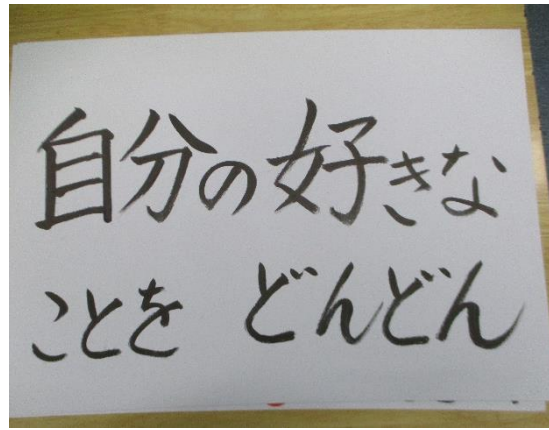 自分の好きな
ことを どんどん